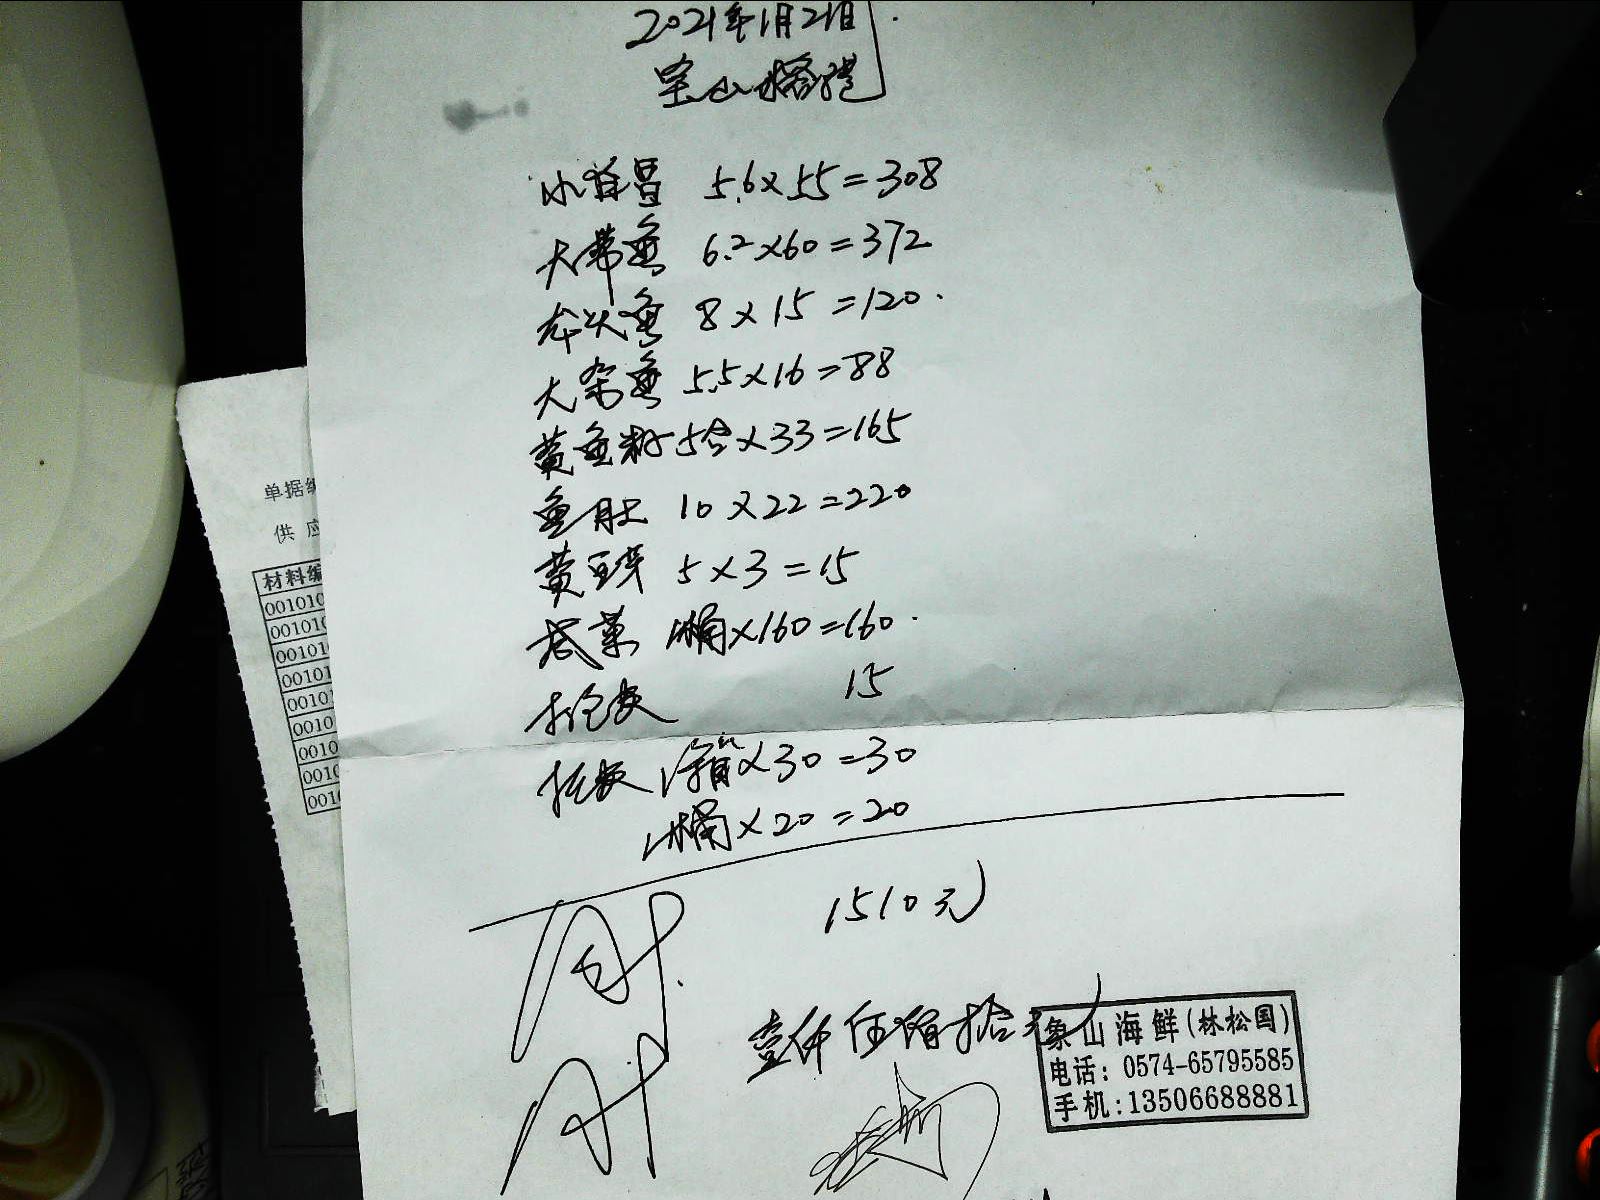 2021年1月21日
宝山
小 昌 5.6×55=308
大带鱼 6.2×60=372
龙头鱼 8×15=120.
大杂鱼 5.5×16=88
黄鱼籽 5合×33=165
鱼肚 10×22=220
黄豆芽 5×3=15
菜 1桶×160=160.
15
1箱×30=30
1桶×20=20
1510元
壹仟伍佰拾元
象山海鲜(林松国)
电话: 0574-65795585
手机:13506688881
单据编
供 应
材料编
001010
001010
001010
00101
00101
0010
0010
0010
0010